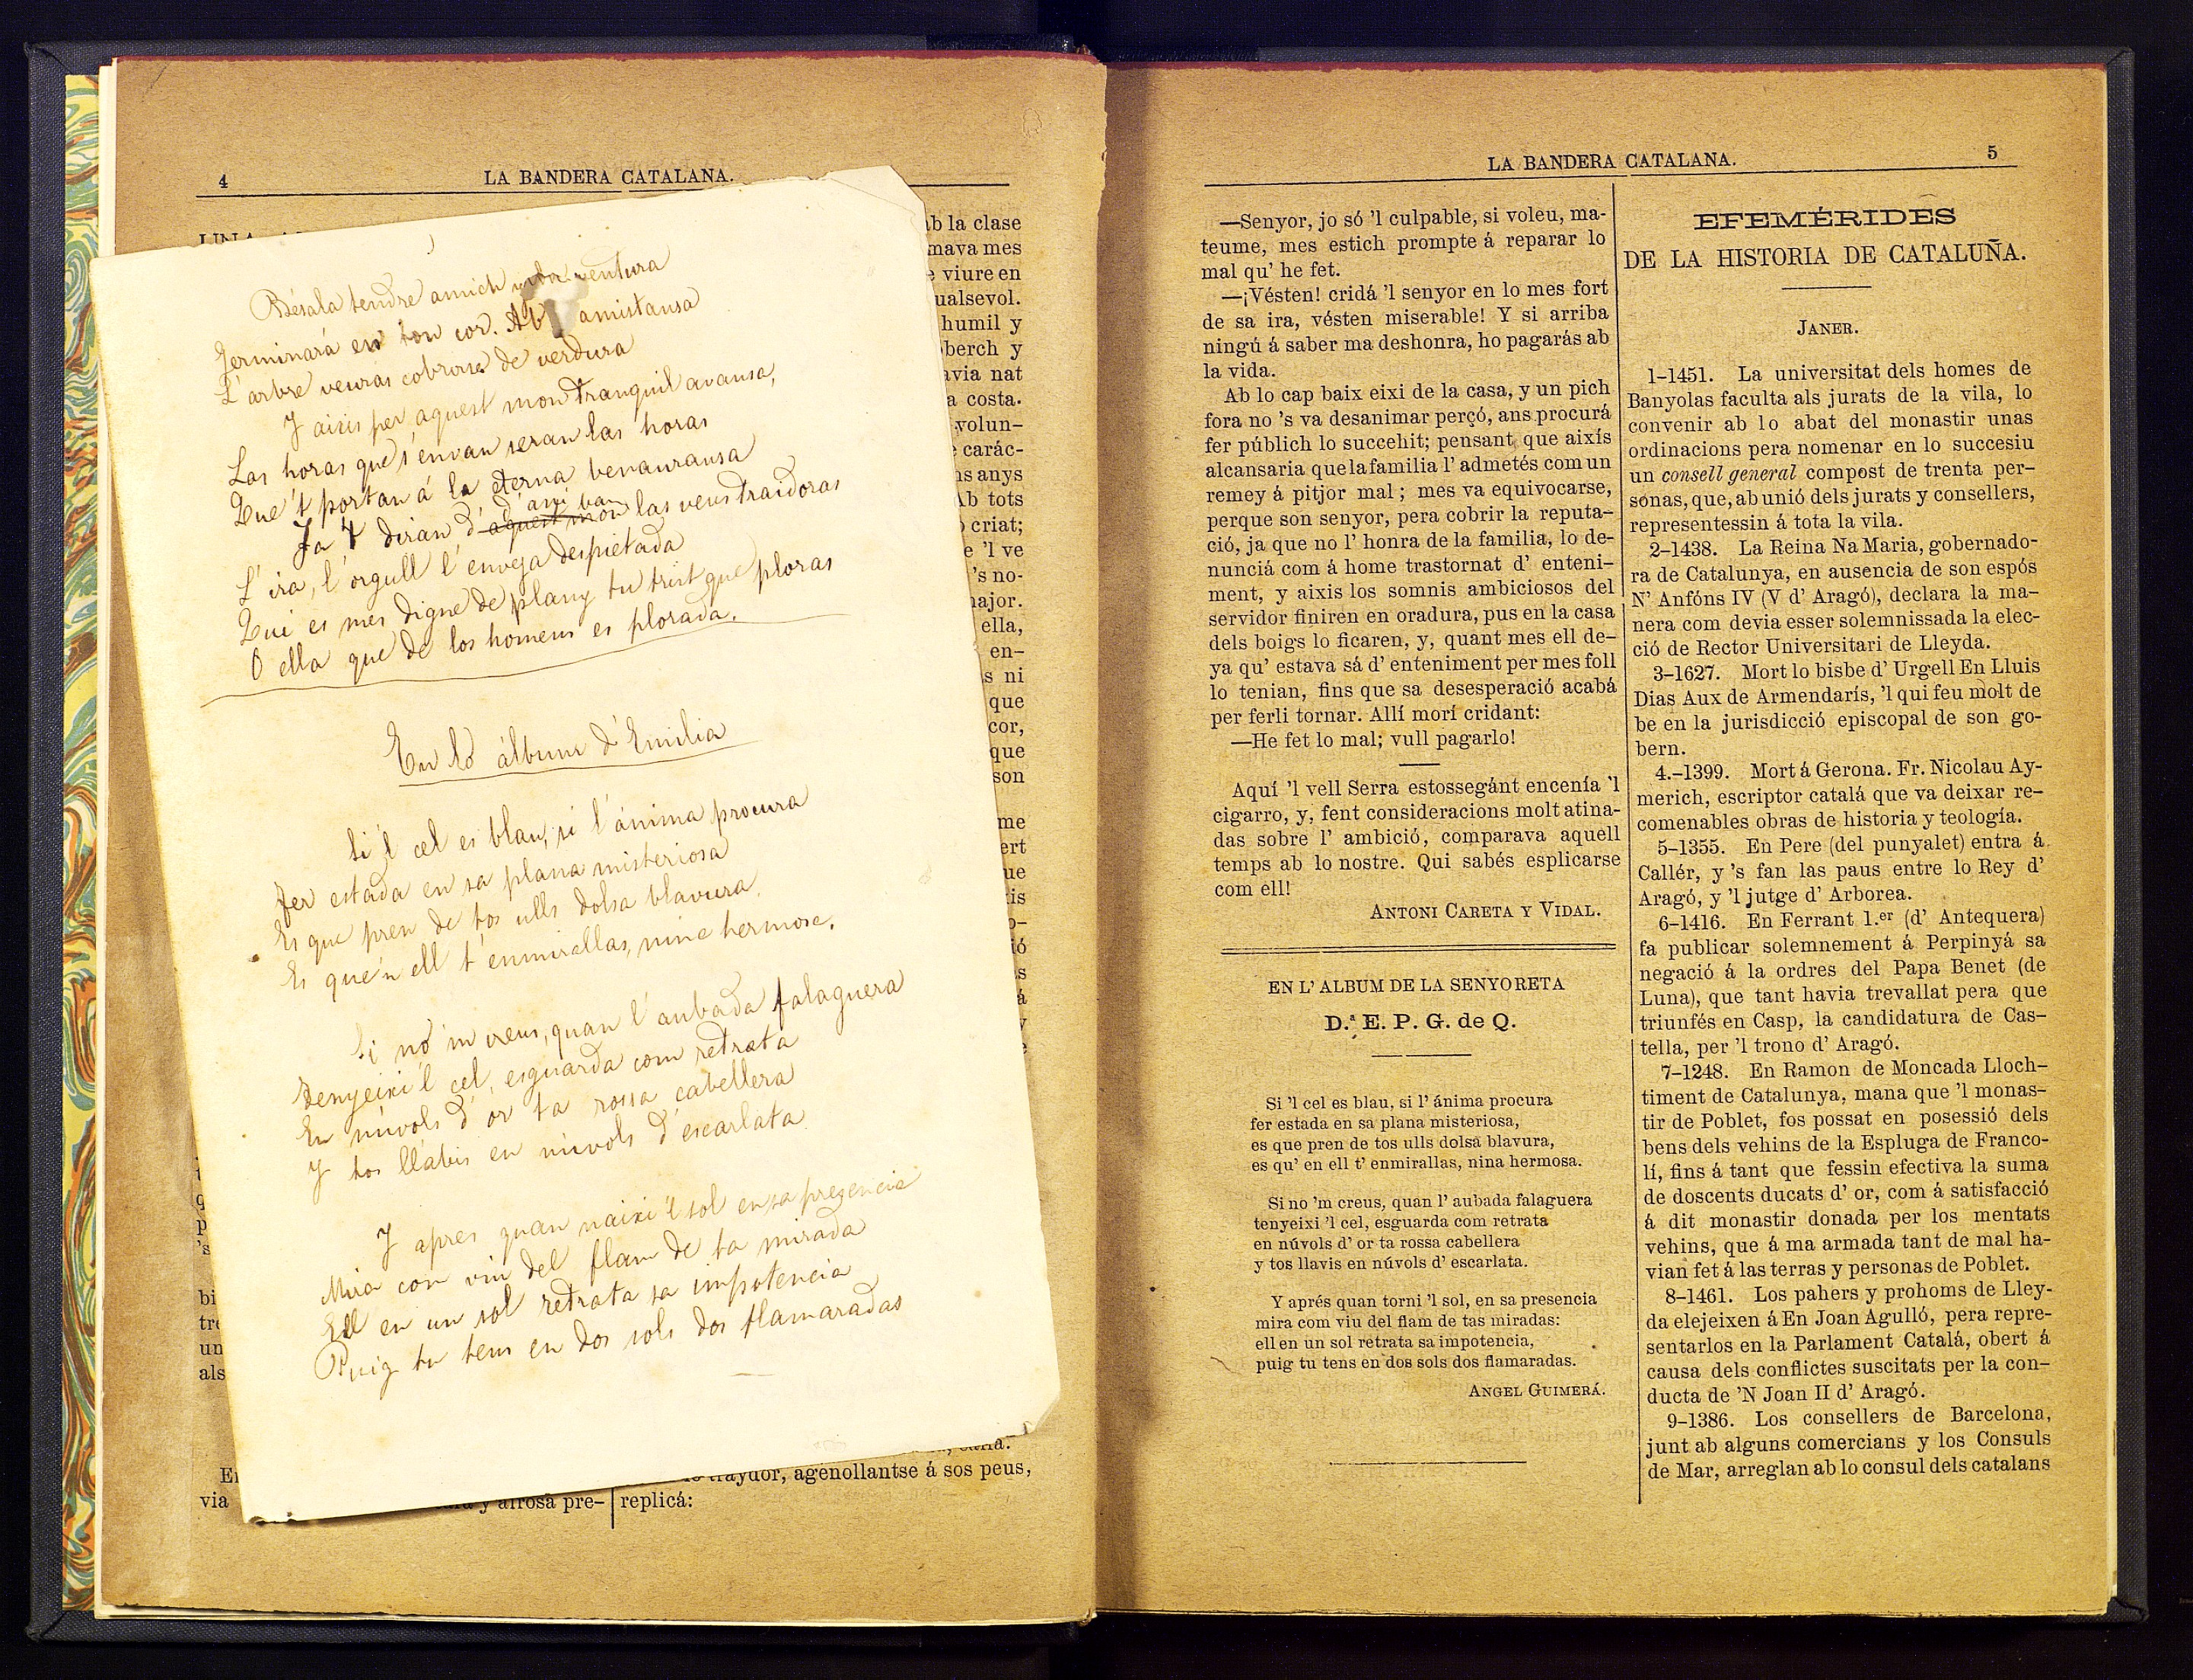 4
LA BANDERA CATALANA.
Bésala tendre amich ventura
Jerminará en ton cor. Ab amistansa
L' arbre veuras cobrirse de verdura
Y aixis per aquest mon tranquil avansa,
Las horas que s' envan seran las horas
Que 't portan á la eterna benauransa
Ja 't diran d' aquest mon las veus traidoras
L' ira, l' orgull l' enveja despietada
Qui es mes digne de plany tu trist que ploras
O ella que de los homens es plorada.
En lo álbum d' Emilia
Si 'l cel es blau, si l' ánima procura
fer estada en sa plana misteriosa
Es que pren de tos ulls dolsa blavura.
Es que 'n ell t' enmirallas, nina hermosa.
Si no 'm creus, quan l' aubada falaguera
Tenyeixi 'l cel, esguarda com retrata
En núvols d' or ta rossa cabellera
Y tos llabis en núvols d' escarlata.
Y apres quan naixi 'l sol en sa presencia
Mira com viu del flam de ta mirada
Ell en un sol retrata sa impotencia
Puig tu tens en dos sols dos flamaradas
ab la clase
mava mes
e viure en
ualsevol.
humil y
berch y
avia nat
a costa.
volun-
e carác-
ns anys
Ab tots
criat;
e 'l ve
's no-
major.
ella,
en-
s ni
que
cor,
que
son
me
ert
ue
bi
un
als
via
y airosa pre-
traydor, agenollantse á sos peus,
replicá:
LA BANDERA CATALANA.
5
—Senyor, jo só 'l culpable, si voleu, ma-
teume, mes estich prompte á reparar lo
mal qu' he fet.
—¡Vésten! cridá 'l senyor en lo mes fort
de sa ira, vésten miserable! Y si arriba
ningú á saber ma deshonra, ho pagarás ab
la vida.
Ab lo cap baix eixi de la casa, y un pich
fora no 's va desanimar perçó, ans procurá
fer públich lo succehit; pensant que aixís
alcansaria que la familia l' admetés com un
remey á pitjor mal; mes va equivocarse,
perque son senyor, pera cobrir la reputa-
ció, ja que no l' honra de la familia, lo de-
nunciá com á home trastornat d' enteni-
ment, y aixis los somnis ambiciosos del
servidor finiren en oradura, pus en la casa
dels boigs lo ficaren, y, quant mes ell de-
ya qu' estava sá d' enteniment per mes foll
lo tenian, fins que sa desesperació acabá
per ferli tornar. Allí morí cridant:
—He fet lo mal; vull pagarlo!
Aquí 'l vell Serra estossegánt encenía 'l
cigarro, y, fent consideracions molt atina-
das sobre l' ambició, comparava aquell
temps ab lo nostre. Qui sabés esplicarse
com ell!
ANTONI CARETA Y VIDAL.
EN L' ALBUM DE LA SENYORETA
D.ª E. P. G. de Q.
Si 'l cel es blau, si l' ánima procura
fer estada en sa plana misteriosa,
es que pren de tos ulls dolsa blavura,
es qu' en ell t' enmirallas, nina hermosa.
Si no 'm creus, quan l' aubada falaguera
tenyeixi 'l cel, esguarda com retrata
en núvols d' or ta rossa cabellera
y tos llavis en núvols d' escarlata.
Y aprés quan torni 'l sol, en sa presencia
mira com viu del flam de tas miradas:
ell en un sol retrata sa impotencia,
puig tu tens en dos sols dos flamaradas.
ANGEL GUIMERÁ.
EFEMÉRIDES
DE LA HISTORIA DE CATALUÑA.
JANER.
1-1451. La universitat dels homes de
Banyolas faculta als jurats de la vila, lo
convenir ab lo abat del monastir unas
ordinacions pera nomenar en lo succesiu
un consell general compost de trenta per-
sonas, que, ab unió dels jurats y consellers,
representessin á tota la vila.
2-1438. La Reina Na Maria, gobernado-
ra de Catalunya, en ausencia de son espós
N' Anfóns IV (V d' Aragó), declara la ma-
nera com devia esser solemnissada la elec-
ció de Rector Universitari de Lleyda.
3-1627. Mort lo bisbe d' Urgell En Lluis
Dias Aux de Armendarís, 'l qui feu molt de
be en la jurisdicció episcopal de son go-
bern.
4.-1399. Mort á Gerona. Fr. Nicolau Ay-
merich, escriptor catalá que va deixar re-
comenables obras de historia y teología.
5-1355. En Pere (del punyalet) entra á
Callér, y 's fan las paus entre lo Rey d'
Aragó, y 'l jutge d' Arborea.
6-1416. En Ferrant 1.er (d' Antequera)
fa publicar solemnement á Perpinyá sa
negació á la ordres del Papa Benet (de
Luna), que tant havia trevallat pera que
triunfés en Casp, la candidatura de Cas-
tella, per 'l trono d' Aragó.
7-1248. En Ramon de Moncada Lloch-
timent de Catalunya, mana que 'l monas-
tir de Poblet, fos possat en posessió dels
bens dels vehins de la Espluga de Franco-
lí, fins á tant que fessin efectiva la suma
de doscents ducats d' or, com á satisfacció
á dit monastir donada per los mentats
vehins, que á ma armada tant de mal ha-
vian fet á las terras y personas de Poblet.
8-1461. Los pahers y prohoms de Lley-
da elejeixen á En Joan Agulló, pera repre-
sentarlos en la Parlament Catalá, obert á
causa dels conflictes suscitats per la con-
ducta de 'N Joan II d' Aragó.
9-1386. Los consellers de Barcelona,
junt ab alguns comercians y los Consuls
de Mar, arreglan ab lo consul dels catalans